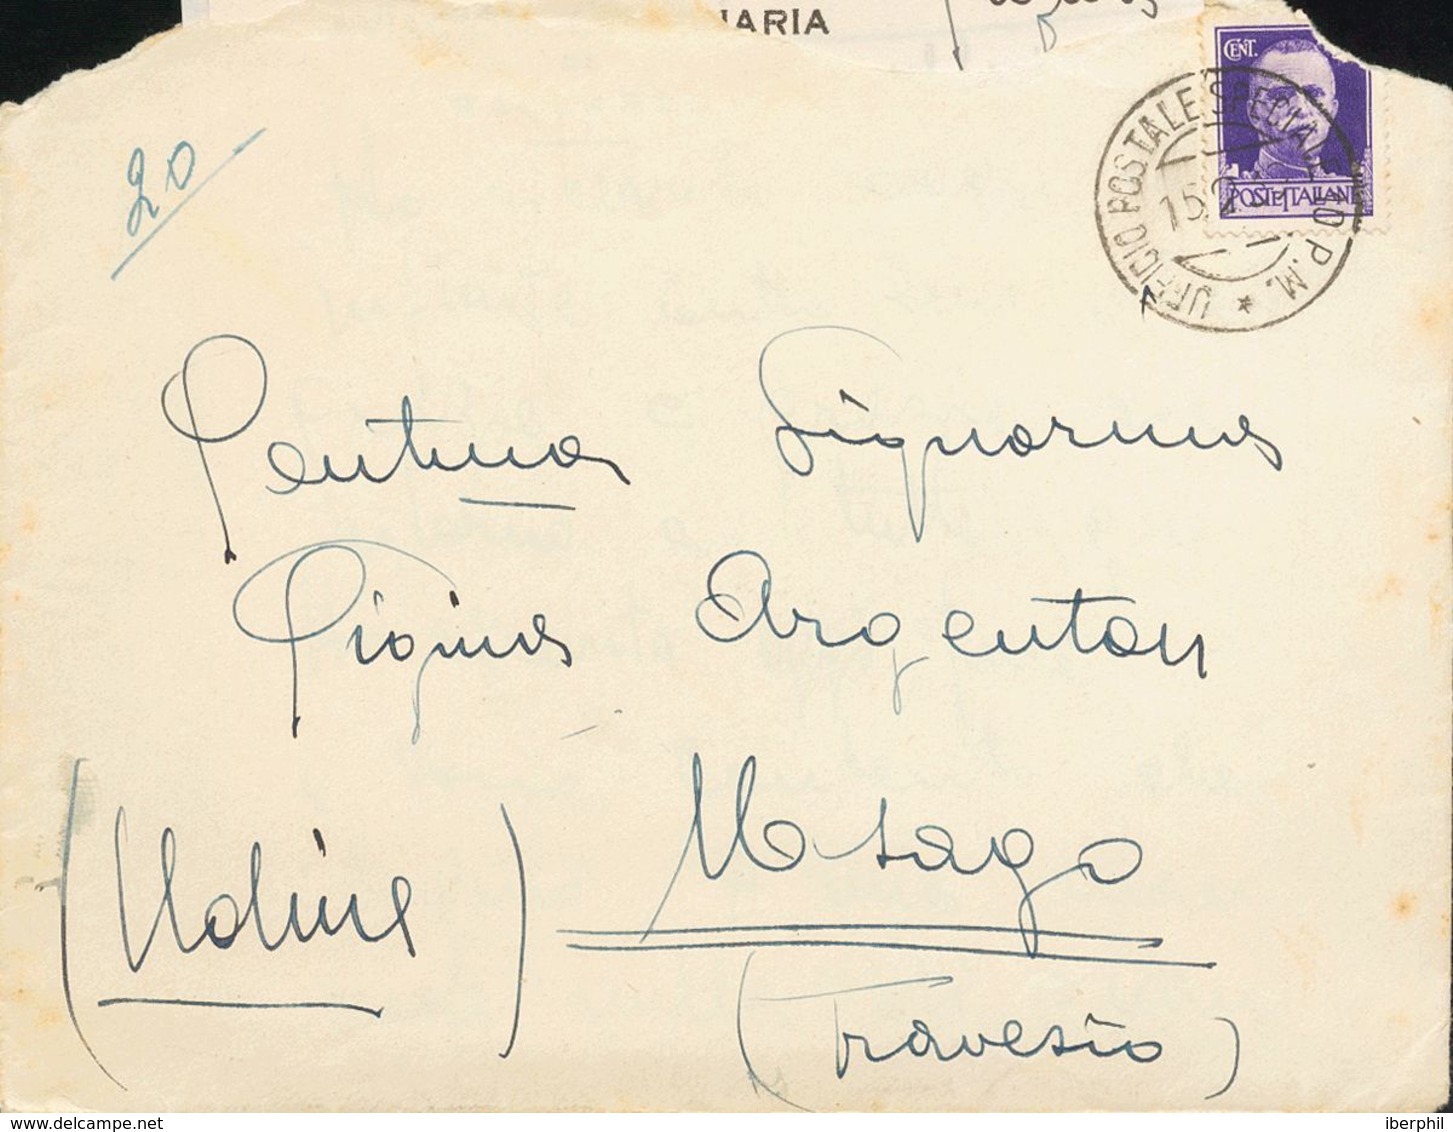 IARIA
CENT.
POSTE ITALIANE
UFFICIO POSTALE SPECIALE 10 P.M. *
20
Gentma Signorina
Pigina Argenton
Usago
(Udine)
(Travesio)
www.delcampe.net
iberphil